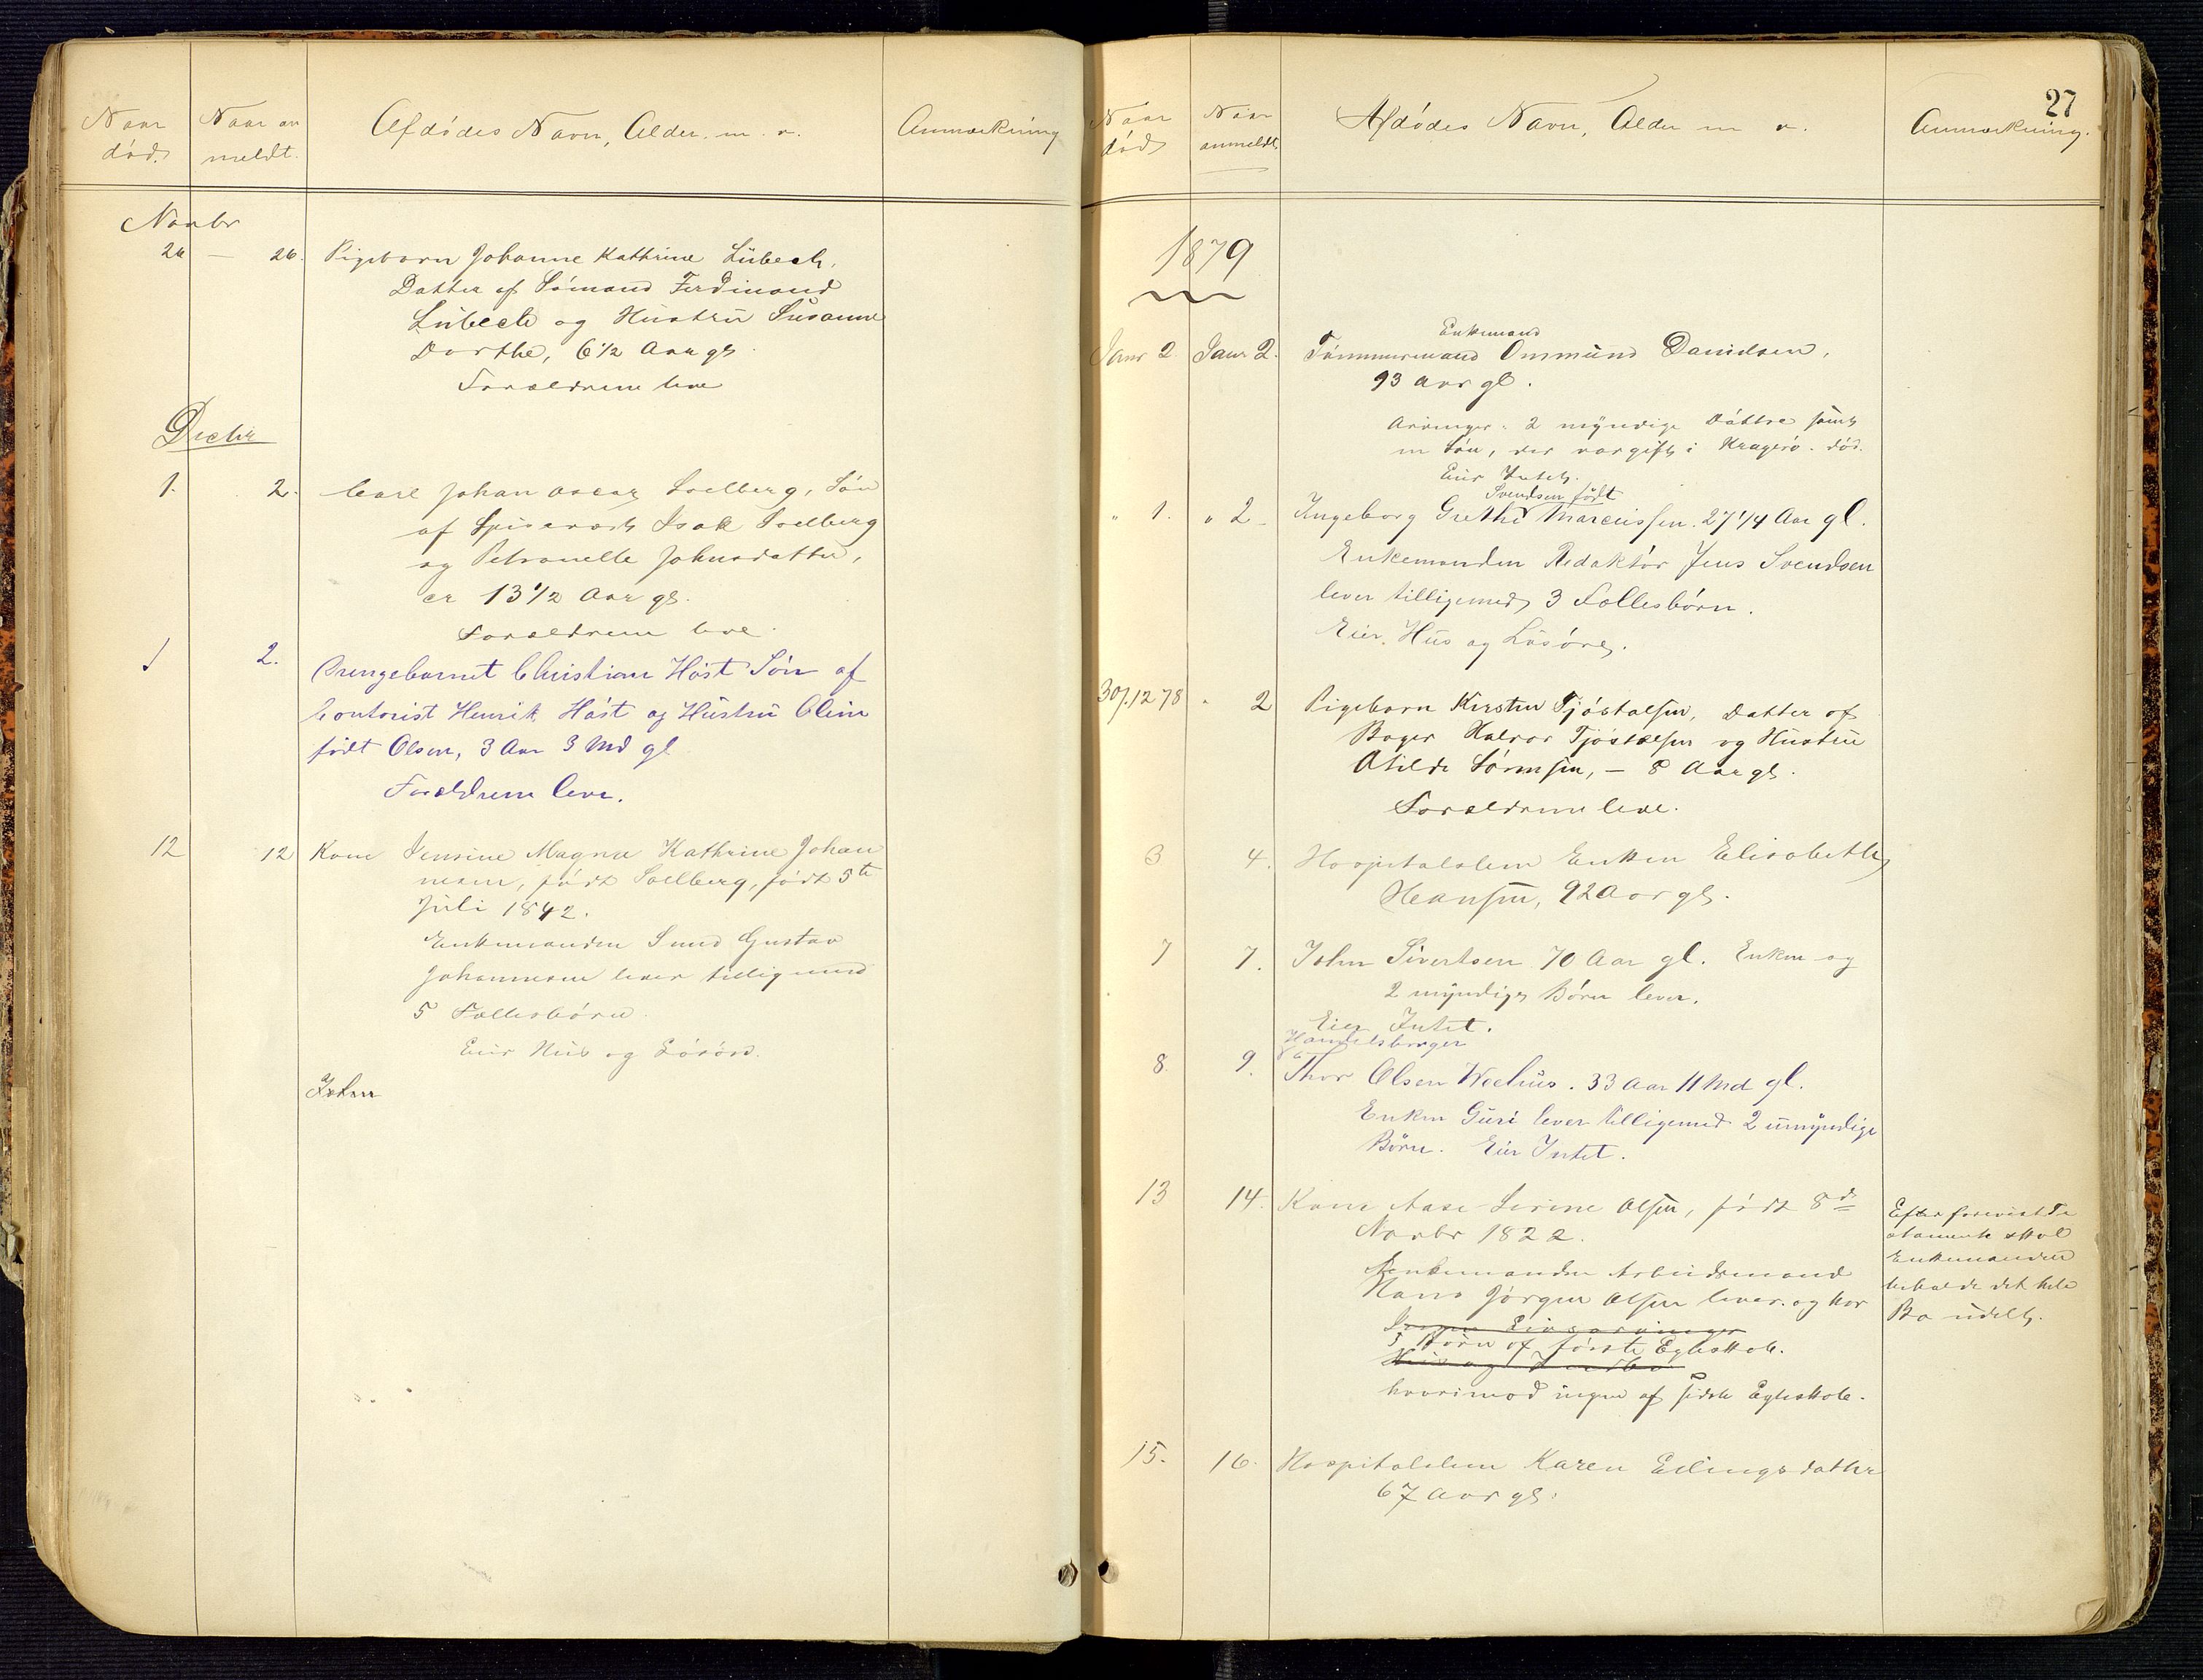 Naar død.
Naar an meldt.
Afdødes Navn, Alder m. v.
Anmærkning
Novbr
26 — 26. Pigebarn Johanne Kathrine Lübeck,
Datter af Sømand Ferdinand
Lübeck og Hustru Susanne
Dorthe, 6 1/2 Aar gl.
Forældrene leve
Decbr
1. 2. Carl Johan Oscar Soelberg, Søn
af Spisevært Isak Soelberg
og Petronelle Johnsdatter,
er 13 1/2 Aar gl.
Forældrene leve.
1 2. Drengebarnet Christian Høst Søn af
Contorist Henrik Høst og Hustru Oline
født Olsen, 3 Aar 3 Md gl
Forældrene leve.
12 12 Kone Jensine Magna Kathrine Johan
nesen, født Soelberg, født 5te
Juli 1842.
Enkemanden Smed Gustav
Johannesen lever tilligemed
5 Fællesbørn.
Eier Hus og Løsøre.
John
27
Naar død
Naar anmeldt.
Afdødes Navn, Alder m v.
Anmærkning.
1879
Enkemand
Janr 2 Janr 2. Tømmermand Ommund Davidsen,
93 Aar gl.
Arvinger: 2 myndige Døttre samt
en Søn, der var gift i Kragerø. død.
Eier Intet.
Svendsen født
" 1. " 2 - Ingeborg Grethe Marcussen. 27 1/4 Aar gl.
Enkemanden Redaktør Jens Svendsen
lever tilligemed 3 Fællesbørn.
Eier Hus og Løsøre.
30/12 78 " 2 Pigebarn Kirsten Tjøstolsen, Datter af
Bager Halvor Tjøstolsen og Hustru
Otilde Sørensen, — 8 Aar gl.
Forældrene leve.
3 4. Hospitalslem Enken Elisabeth
Hansen, 92 Aar gl.
7 7. John Sivertsen 70 Aar gl. Enken og
2 myndige Børn lever.
Eier Intet.
Handelsborger
8 9. Thor Olsen Weehus. 33 Aar 11 Md gl.
Enken Guri lever tilligemed 2 umyndige
Børn. Eier Intet.
13 14. Kone Aase Serine Olsen, født 8de
Novbr 1822.
Enkemanden Arbeidsmand
Hans Jørgen Olsen lever. og har
Ingen Livsarvinger
3 Børn af første Egteskab.
Hus og Indbo
hvorimod ingen af sidste Egteskab.
Efter forevist Te
stamente skal
Enkemanden
beholde det hele
Bo udelt.
15. 16. Hospitalslem Karen Erlingsdatter
67 Aar gl.